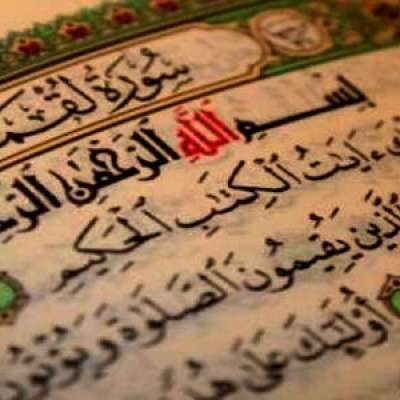 سُورَةُ لُقْمَـ
بِسْمِ ٱللَّهِ ٱلرَّحْمَٰنِ ٱلرَّحِـ
ءَايَٰتُ ٱلْكِتَٰبِ ٱلْحَكِيمِ
ٱلَّذِينَ يُقِيمُونَ ٱلصَّلَوٰةَ وَيُؤْتُونَ
أُو۟لَٰٓئِكَ عَلَىٰ هُدًى